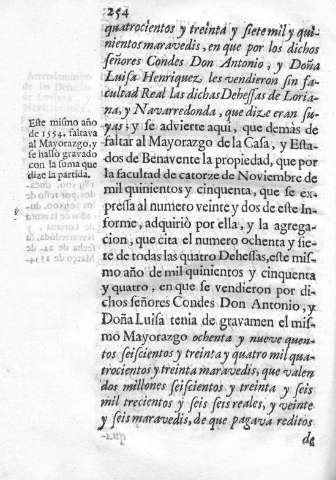 254
quatrocientos y treinta y siete mil y qui-
nientos maravedis, en que por los dichos
señores Condes Don Antonio, y Doña
Luisa Henriquez les vendieron sin fa-
cultad Real las dichas Dehessas de Loria-
na, y Navarredonda, que dize eran su-
yas; y se advierte aqui, que demàs de
faltar al Mayorazgo de la Casa, y Esta-
dos de Benavente la propiedad, que por
la facultad de catorze de Noviembre de
mil quinientos y cinquenta, que se ex-
pressa al numero veinte y dos de este In-
forme, adquiriò por ella, y la agrega-
cion, que cita el numero ochenta y sie-
te de todas las quatro Dehessas, este mis-
mo año de mil quinientos y cinquenta
y quatro, en que se vendieron por di-
chos señores Condes Don Antonio, y
Doña Luisa tenia de gravamen el mis-
mo Mayorazgo ochenta y nueve quen-
tos seiscientos y treinta y quatro mil qua-
trocientos y treinta maravedis, que valen
dos millones seiscientos y treinta y seis
mil trecientos y seis seis reales, y veinte
y seis maravedis, de que pagava reditos
de
Este mismo año
de 1554. faltava
al Mayorazgo, y
se hallò gravado
con la suma que
dize la partida.